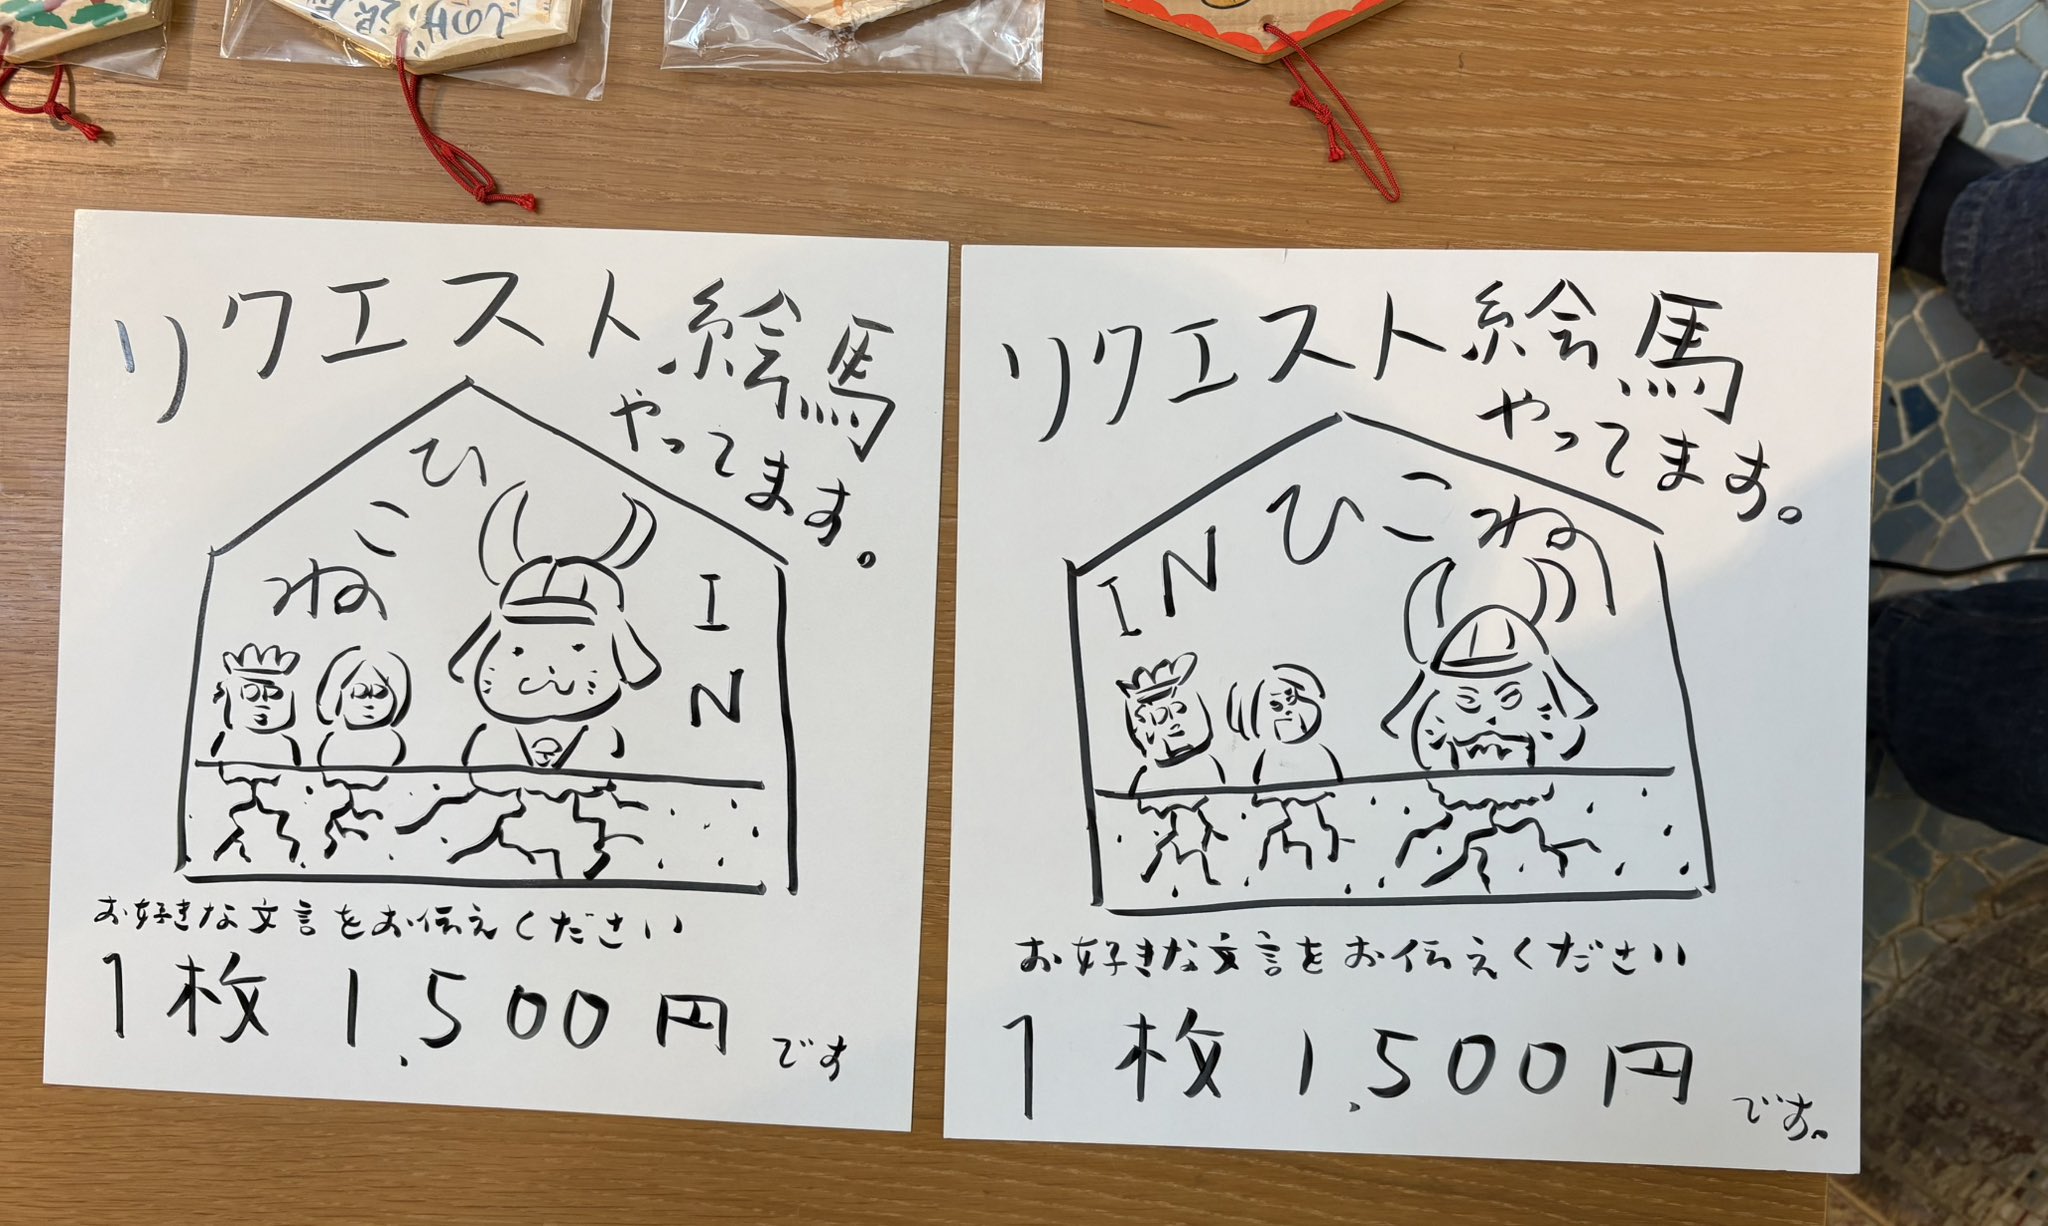 リクエスト絵馬
やってます。
ひこね
IN
お好きな文言をお伝えください
1枚 1,500円
です
リクエスト絵馬
やってます。
IN ひこね
お好きな文言をお伝えください
1枚 1,500円
です。